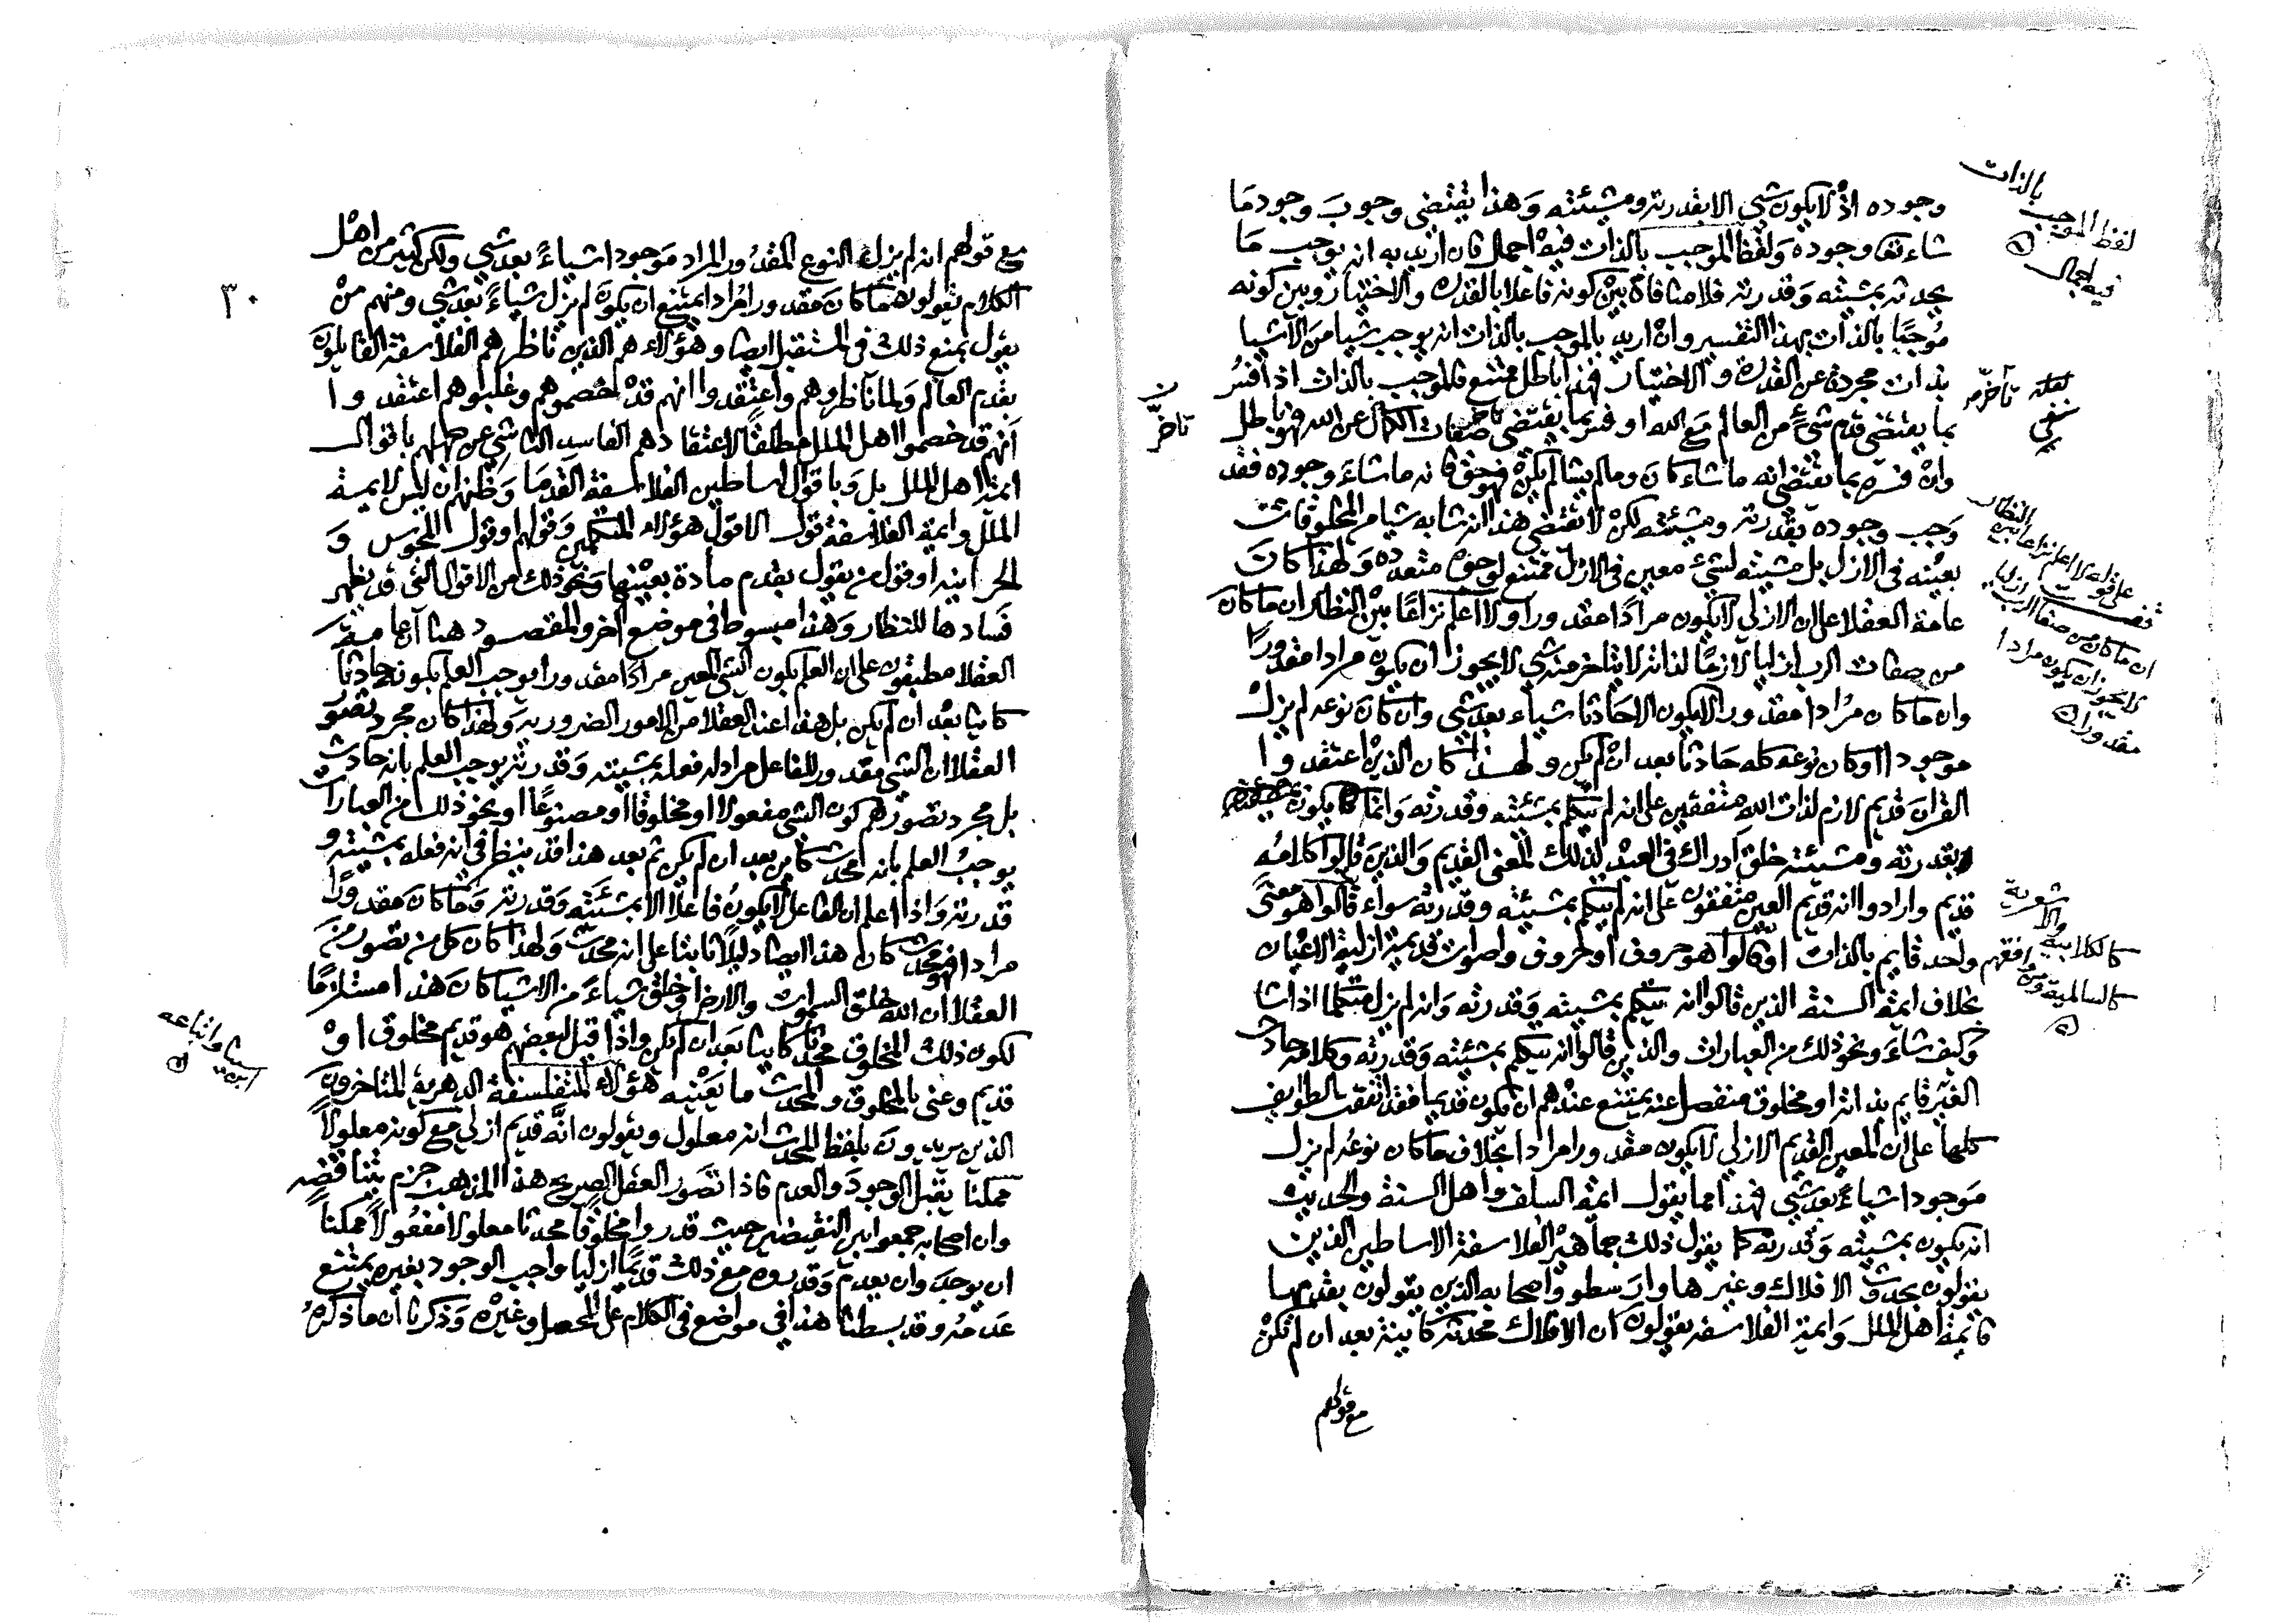 وجوده اذ لا يكون شي الا بقدرته ومشيئته وهذا يقتضي وجوب وجود ما
شاء تعا وجوده ولفظ الموجب بالذات فيه اجمال فان اريد به انه يوجب ما
يحدثه بمشيئته وقدرته فلا منافاة بين كونه فاعلا بالقدرة والاختيار وبين كونه
موجبا بالذات بهذا التفسير وان اريد بالموجب بالذات انه يوجب شيا من الاشيا
بذات مجردة عن القدرة والاختيار فهذا باطل ممتنع فالموجب بالذات اذا فسر
بما يقتضي قدم شيء من العالم مع الله او فسر بما يقتضي صفات الكمال عن الله فهو باطل
وان فسره بما يقتضي انه ما شاء كان وما لم يشا لم يكن فهو حق فانه ما شاء وجوده فقد
وجب وجوده بقدرته ومشيئته لكن لا يقتضي هذا انه شا به شيا من المخلوقات
بعينه في الازل بل مشيئته لشيء معين في الازل ممتنع لوجوه متعدده ولهذا كان
عامة العقلا على ان الازلي لا يكون مرادا مقدورا ولا اعلم نزاعا بين النظار ان ما كان
من صفات الرب ازليا لازما لذاته لا يتاخر منه شي لا يجوز ان يكون مرادا مقدورا
وان ما كان مرادا مقدورا لا يكون الا حادثا شياء بعد شي وان كان نوعه لم يزل
موجودا او كان نوعه كله حادثا بعد ان لم يكن ولهذا كان الذين اعتقدوا
القران قديم لازم لذات الله متفقين على انه لم يتكلم بمشيئته وقدرته وانما يكون
بقدرته ومشيئته خلق ادراك في العبد لذلك المعنى القديم والذين قالوا كلامه
قديم وارادوا انه قديم العين متفقون على انه لم يتكلم بمشيئته وقدرته سواء قالوا هو معنى
واحد قايم بالذات او قالوا هو حروف او حروف واصوات قديمة ازلية الاعيان
بخلاف ايمة السنة الذين قالوا انه يتكلم بمشيئته وقدرته وانه لم يزل متكلما اذا شا
وكيف شاء ونحو ذلك من العبارات والذين قالوا انه يتكلم بمشيئته وقدرته وكلامه حادث
الغير قايم بذاته او مخلوق منفصل عنه يمتنع عندهم ان يكون قديما فقد اتفقت الطوايف
كلها على ان المعين القديم الازلي لا يكون مقدورا مرادا بخلاف ما كان نوعه لم يزل
موجودا شياء بعد شي فهذا مما يقول ايمة السلف واهل السنة والحديث
انه يكون بمشيئته وقدرته كما يقول ذلك جماهير الفلاسفة الاساطين الذين
يقولون بحدوث الافلاك وغيرها وارسطو واصحابه الذين يقولون بقدمها
فايمة اهل الملل وايمة الفلاسفه يقولون ان الافلاك محدثة كاينة بعد ان لم تكن
مع قولهم
لفظ الموجب بالذات
فيه اجمال
لعله تأخر
نفي
تاخر
على قوله لا اعلم نزاعا بين النظار
ان ما كان من صفات الرب ازليا
لا يجوز ان يكون مرادا
مقدورا
كالكلابية والاشعرية
كالسالمية ومن وافقهم
٣٠
مع قولهم انه لم يزل النوع المقدور المراد موجودا شياءً بعد شي ولكن كثير من اهل
الكلام يقولون ما كان مقدورا مرادا يمتنع ان يكون لم يزل شياءً بعد شي ومنهم من
يقول بمنع ذلك في المستقبل ايضا وهؤلاء هم الذين ناظرهم الفلاسفة القايلون
بقدم العالم ولما ناظروهم واعتقدوا انهم قد خصموهم وغلبوهم اعتقدوا
انهم قد خصموا اهل الملل مطلقا لاعتقادهم الفاسد الناشي عن جهلهم باقوال
ايمة اهل الملل بل وباقوال اساطين الفلاسفة القدما وظنهم ان ليس لايمة
الملل وايمة الفلاسفة قول الا قول هؤلاء المتكلمين وقولهم او قول المجوس و
الحرانية او قول من يقول بقدم مادة بعينها ونحو ذلك من الاقوال التي قد يظهر
فسادها للنظار وهذا مبسوط في موضع آخر والمقصود هنا ان عامة
العقلا مطبقون على ان العلم بكون الشي المعين مرادا مقدورا يوجب العلم بكونه حادثا
كاينا بعد ان لم يكن بل هذا عند العقلا من الامور الضرورية ولهذا كان مجرد تصور
العقلا ان الشي مقدور للفاعل مراد له فعله بمشيته وقدرته يوجب العلم بانه حادث
بل مجرد تصورهم كون الشي مفعولا او مخلوقا او مصنوعا او نحو ذلك من العبارات
يوجب العلم بانه محدث كاين بعد ان لم يكن ثم بعد هذا قد ينظر في انه فعله بمشيته و
قدرته واذا علم ان الفاعل لا يكون فاعلا الا بمشيئته وقدرته وما كان مقدورا
مرادا فهو محدث كان هذا ايضا دليلا ثابتا على انه محدث ولهذا كان كل من تصور من
العقلا ان الله خلق السموات والارض او خلق شياء من الاشيا كان هذا مستلزما
لكون ذلك المخلوق محدثا كاينا بعد ان لم يكن واذا قيل لبعضهم هو قديم مخلوق او
قديم وعنى بالمخلوق والمحدث ما يعنيه هؤلاء المتفلسفة الدهرية المتاخرون
الذين يريدون بلفظ المحدث انه معلول ويقولون انه قديم ازلي مع كونه معلولا
ممكنا يقبل الوجود والعدم فاذا تصور العقل الصريح هذا المذهب جزم بتناقضه
وان اصحابه جمعوا بين النقيضين حيث قدروا مخلوقا محدثا معلولا مفعولا ممكنا
ان يوجد وان يعدم وقدروه مع ذلك قديما ازليا واجب الوجود بغيره يمتنع
عدمه وقد بسطنا هذا في مواضع في الكلام على المحصل وغيره وذكرنا ان ما ذكره
ابن سينا واتباعه